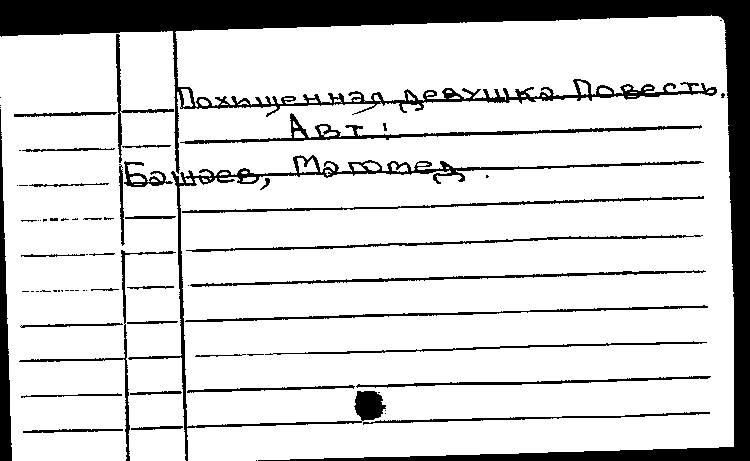 Похищенная девушка. Повесть.
Авт:
Башаев, Магомед.